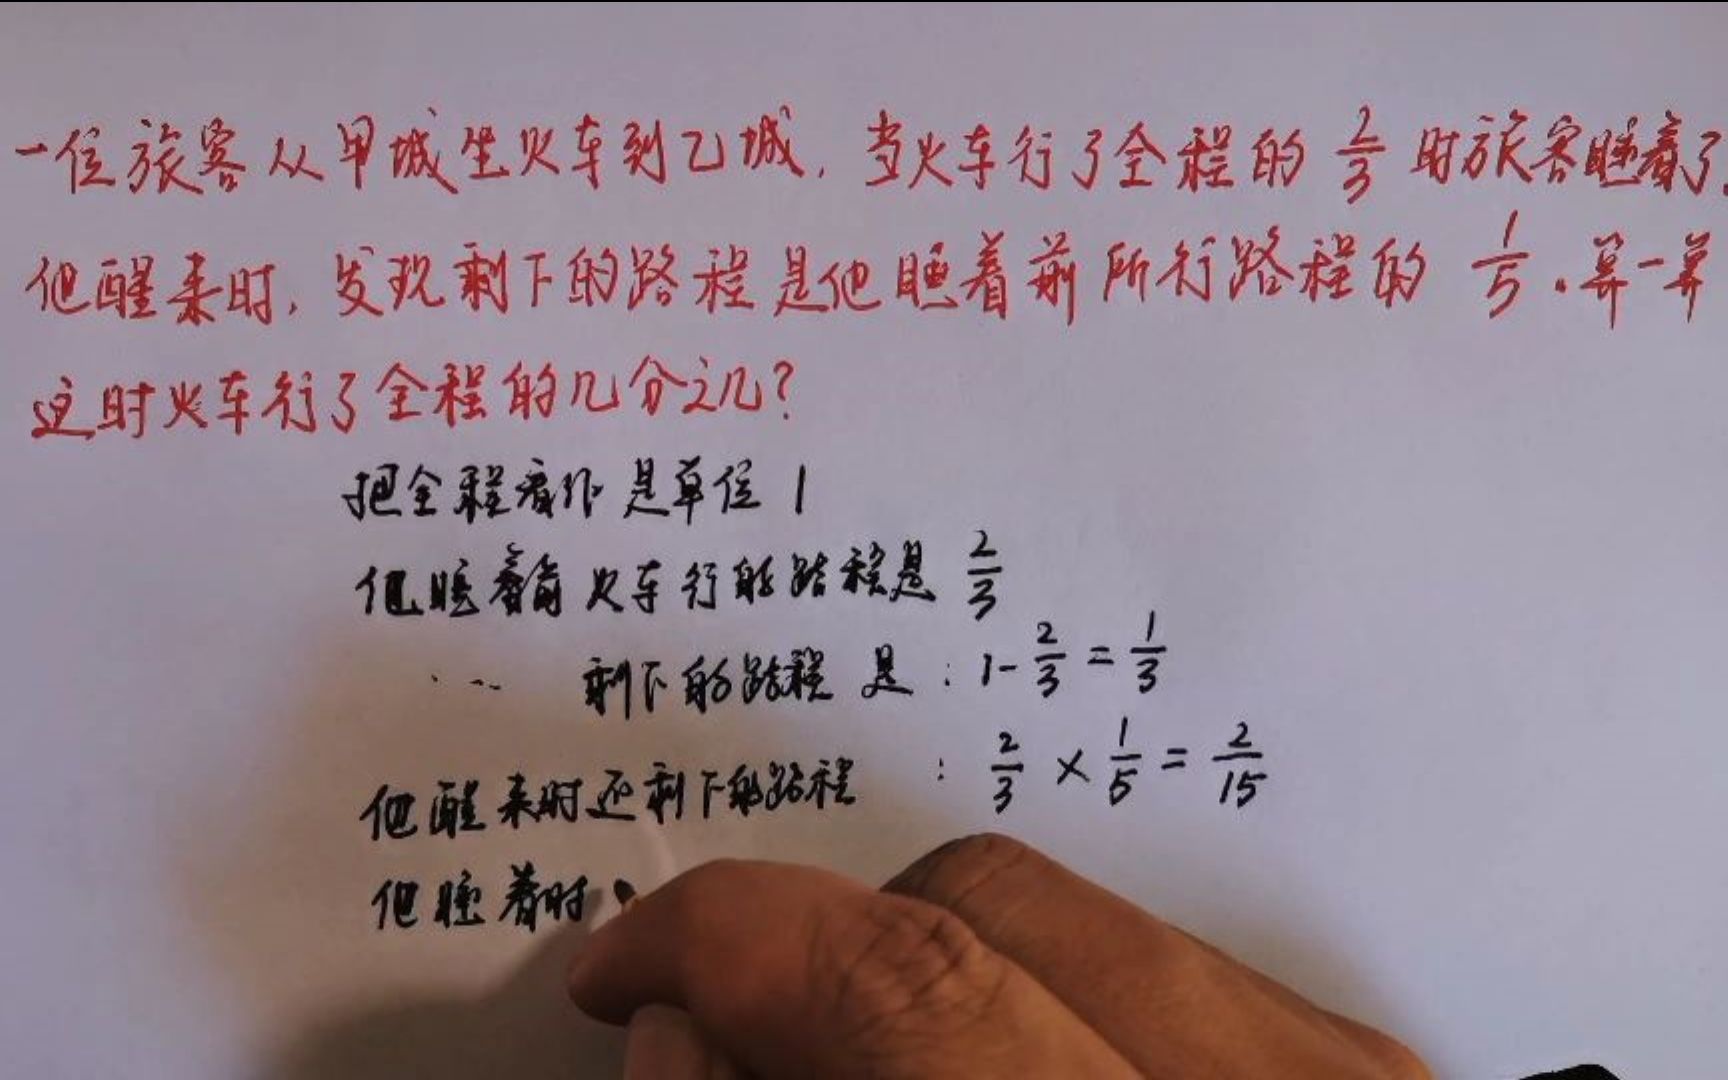 一位旅客从甲城坐火车到乙城，当火车行了全程的 2/3 时旅客睡着了.
他醒来时，发现剩下的路程是他睡着前所行路程的 1/5 . 算一算
这时火车行了全程的几分之几？
把全程看作是单位 1
他睡着前火车行的路程是 2/3
... 剩下的路程是：1 - 2/3 = 1/3
他醒来时还剩下的路程：2/3 × 1/5 = 2/15
他睡着时